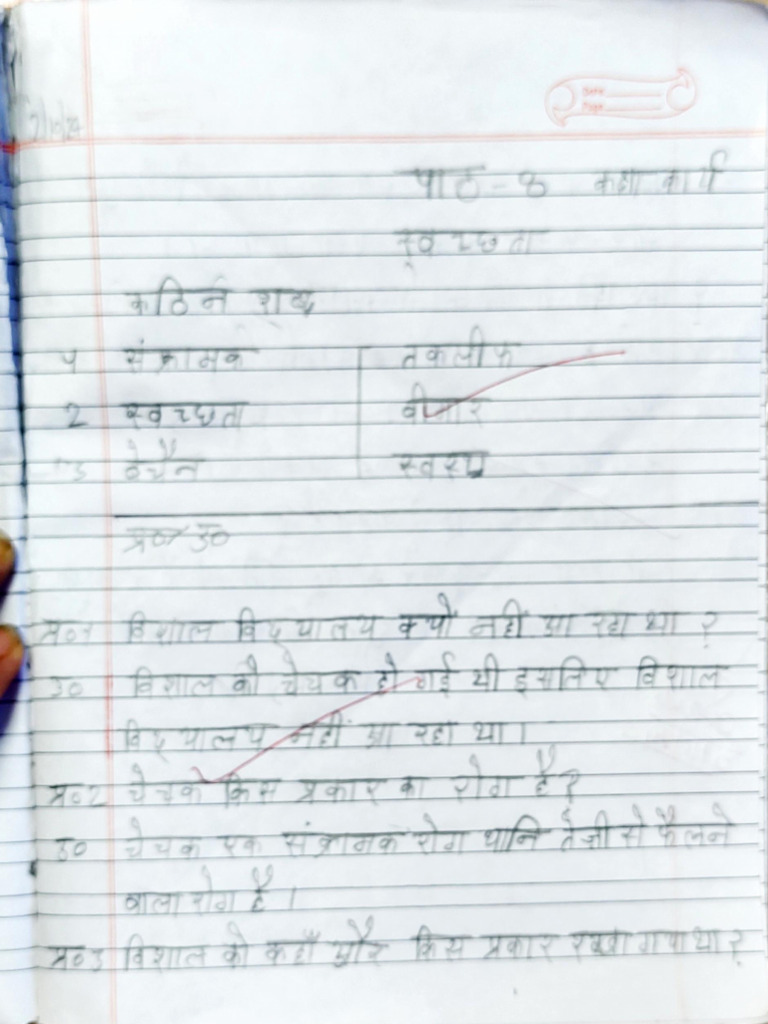 2/10/24
Date
Page
पाठ - 8 कक्षा कार्य
स्वच्छता
कठिन शब्द
1 संक्रामक तकलीफ
2 स्वच्छता बीमार
3 बेचैन स्वस्थ
प्र०/उ०
प्र०1 विशाल विद्यालय क्यों नहीं आ रहा था ?
उ० विशाल को चेचक हो गई थी इसलिए विशाल
विद्यालय नहीं आ रहा था।
प्र०2 चेचक किस प्रकार का रोग है ?
उ० चेचक एक संक्रामक रोग यानि तेजी से फैलने
वाला रोग है ।
प्र०3 विशाल को कहाँ और किस प्रकार रखा गया था ?